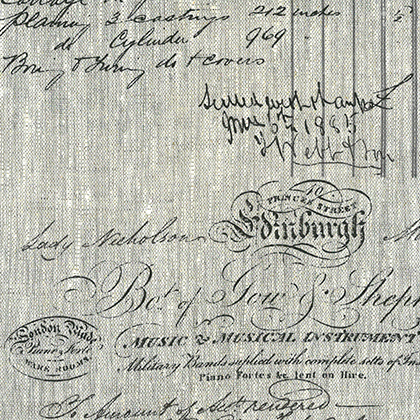 planing 3 castings 212 inches
do Cylinder 969
Boring & turning do & covers
Settled with thanks
1885
PRINCES STREET
Edinburgh
Lady Nicholson
Bot. of Gow & Shep
London Made
Piano Forte
WARE ROOMS.
MUSIC & MUSICAL INSTRUMENT
Military Bands supplied with complete setts of Ins
Piano Fortes &c lent on Hire.
To Amount of Acct rendered